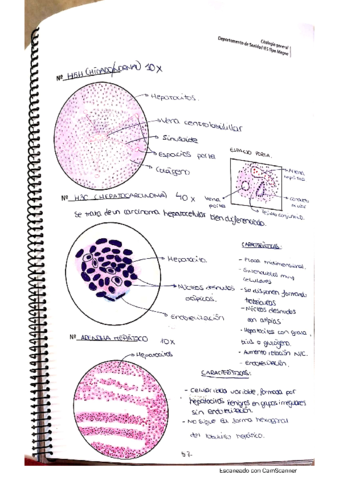 Citología general
Departamento de Sanidad IES Pipo Magno
Nº H5H (HIGADO/SANA) 10X
Hepatocitos.
Vena centrolobulillar
Sinusoide
Espacios porta
Colágeno
ESPACIO PORTA.
Arteria
hepática
Vena
porta
conducto
biliar
tejido conjuntivo
Nº H3C (HEPATOCARCINOMA) 40X
Se trata de un carcinoma hepatocelular bien diferenciado.
Hepatocito
Núcleos desnudos
atípicos.
Endotelización
CARACTERÍSTICAS:
- Placas tridimensional.
- Se disponen formando
trabéculas
- Núcleos desnudos
con atipias.
- Hepatocitos con grasa,
bilis o glucógeno.
- Aumento relación N/C.
- endotelización.
Nº ADENOMA HEPÁTICO 10X
Hepatocitos
CARACTERÍSTICAS:
- Celularidad variable, formada por
hepatocitos benignos en grupos irregulares
sin endotelización.
- No sigue la forma hexagonal
del lobulillo hepático.
52
Escaneado con CamScanner